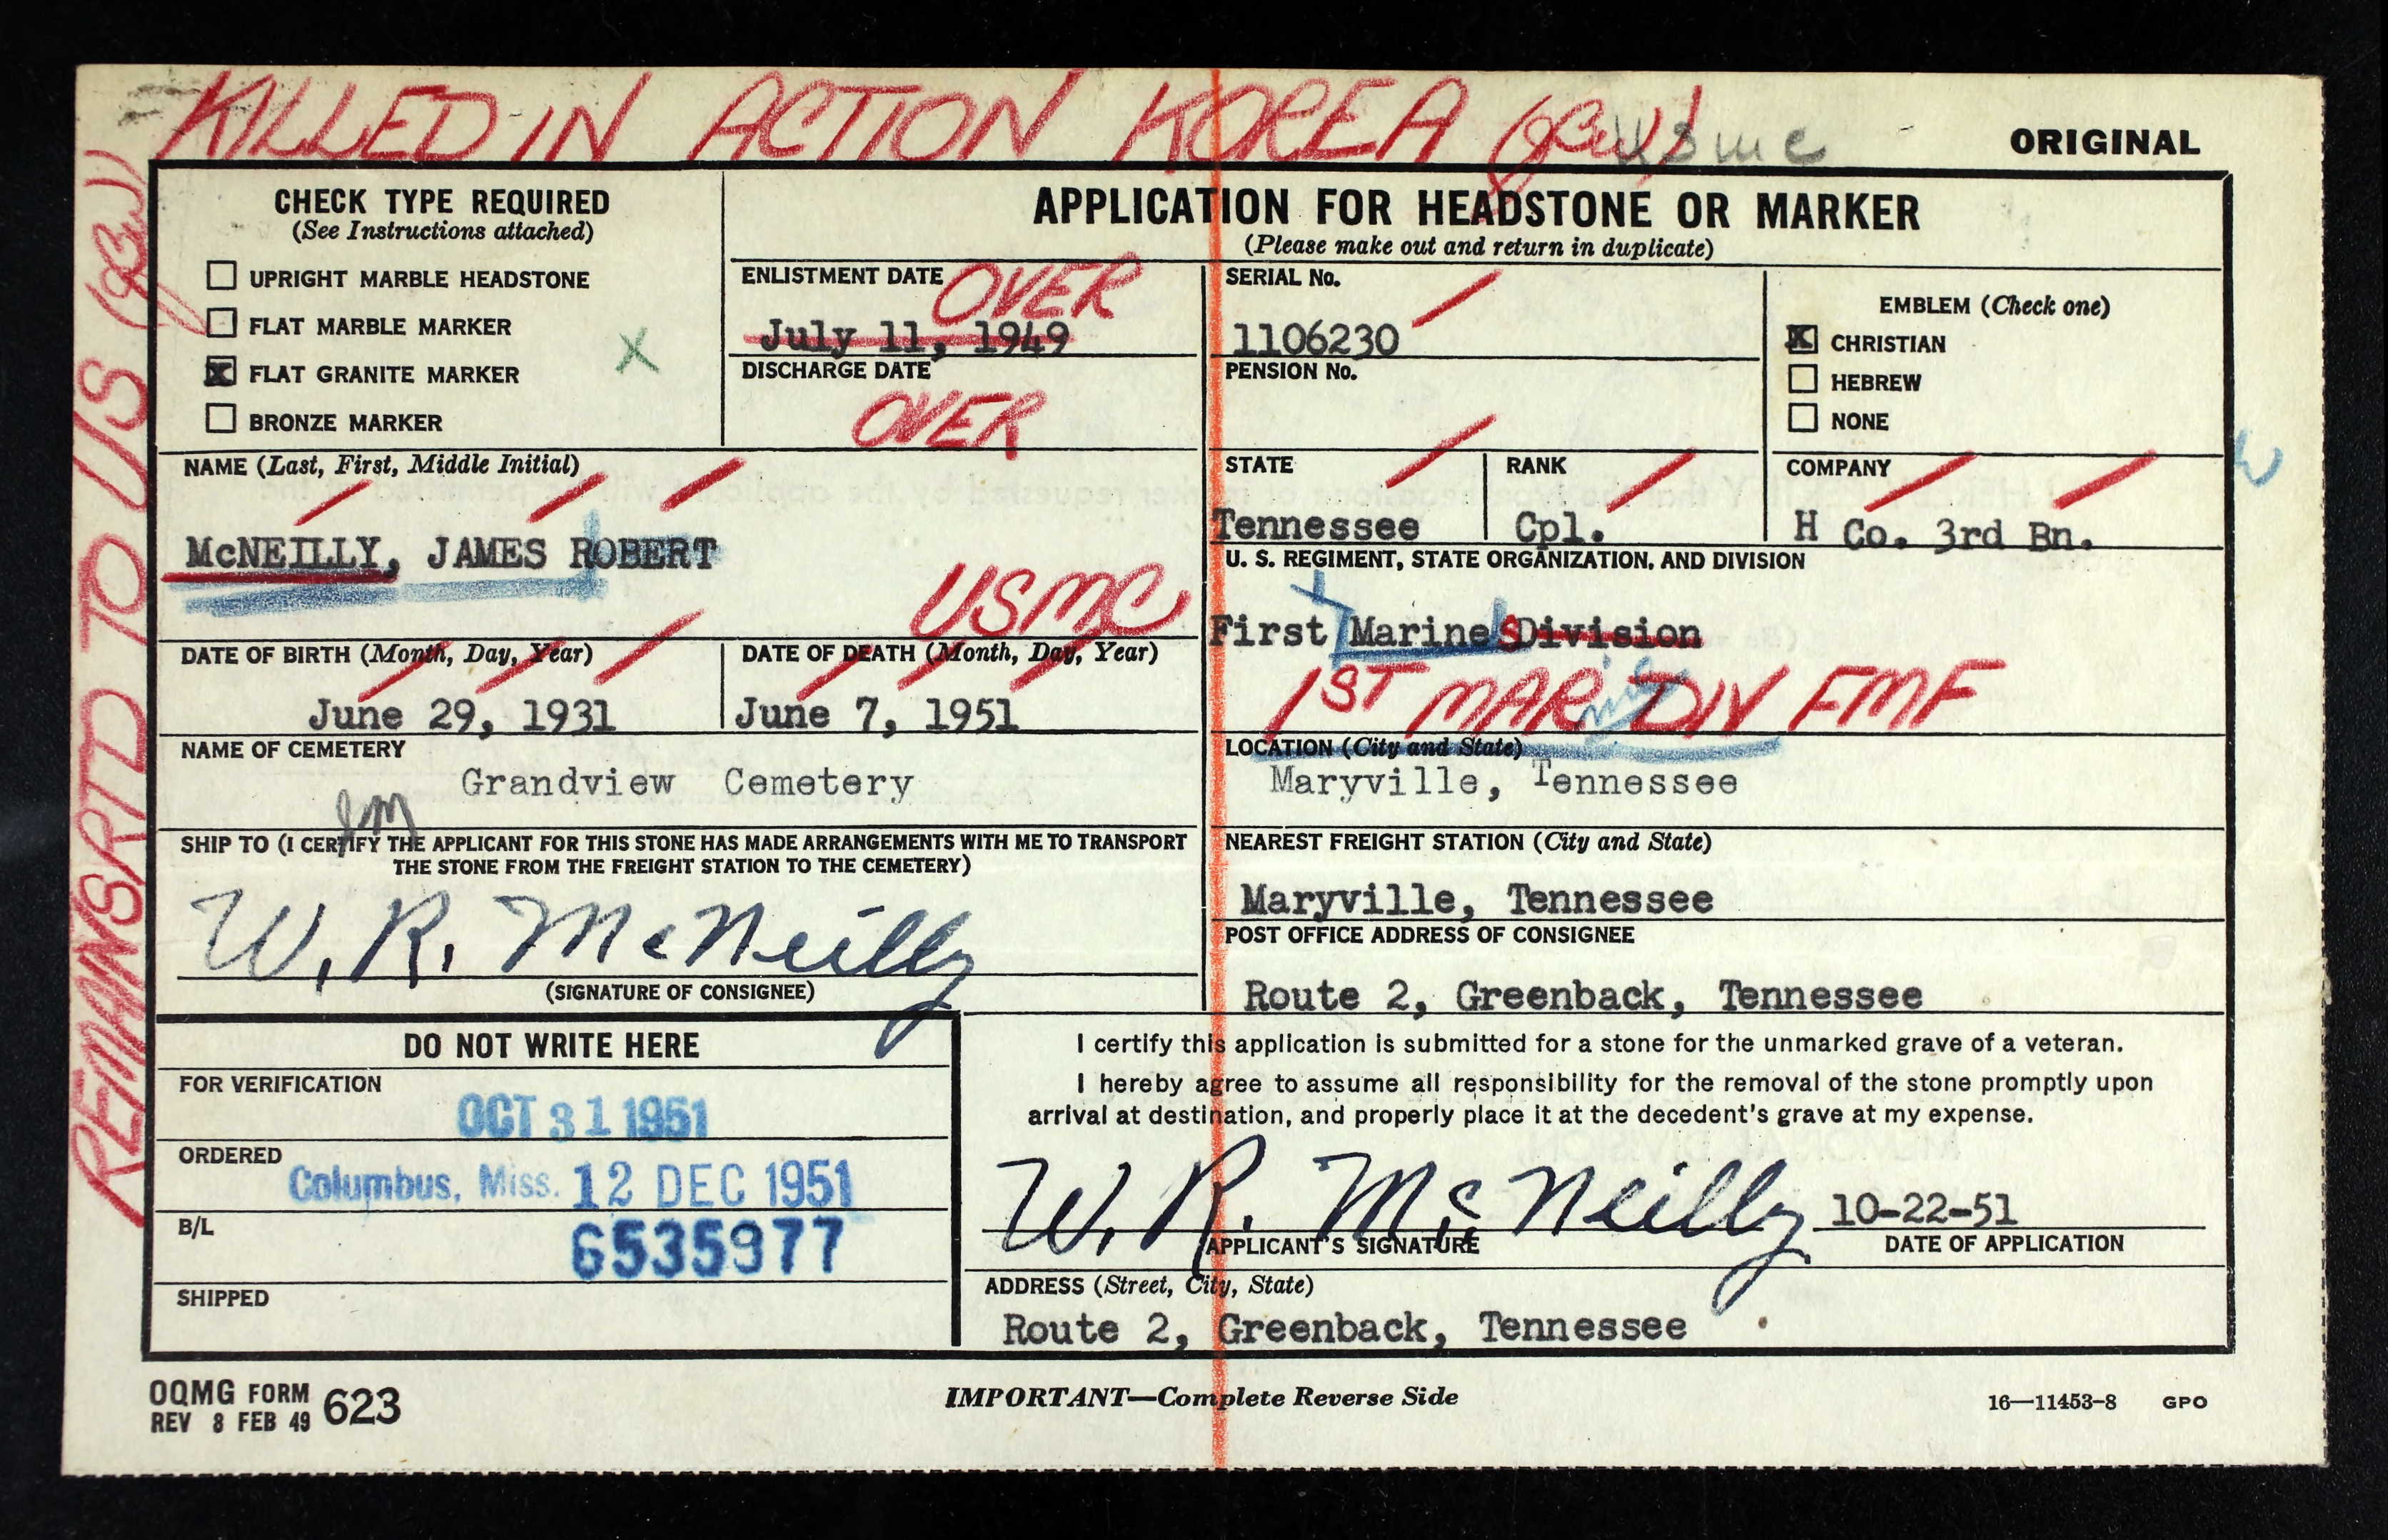 KILLED IN ACTION KOREA
usmc
ORIGINAL
REMAINSRTD TO US
CHECK TYPE REQUIRED
(See Instructions attached)
UPRIGHT MARBLE HEADSTONE
FLAT MARBLE MARKER
X FLAT GRANITE MARKER X
BRONZE MARKER
APPLICATION FOR HEADSTONE OR MARKER
(Please make out and return in duplicate)
ENLISTMENT DATE OVER
July 11, 1949
DISCHARGE DATE
OVER
SERIAL No.
1106230
PENSION No.
EMBLEM (Check one)
X CHRISTIAN
HEBREW
NONE
NAME (Last, First, Middle Initial)
McNEILLY, JAMES ROBERT
USMC
STATE
Tennessee
RANK
Cpl.
COMPANY
H Co. 3rd Bn.
U. S. REGIMENT, STATE ORGANIZATION, AND DIVISION
First MarineS Division
1ST MAR DIV FMF
DATE OF BIRTH (Month, Day, Year)
June 29, 1931
DATE OF DEATH (Month, Day, Year)
June 7, 1951
NAME OF CEMETERY
Grandview Cemetery
LOCATION (City and State)
Maryville, Tennessee
SHIP TO (I CERTIFY THE APPLICANT FOR THIS STONE HAS MADE ARRANGEMENTS WITH ME TO TRANSPORT
THE STONE FROM THE FREIGHT STATION TO THE CEMETERY)
W. R. McNeilly
(SIGNATURE OF CONSIGNEE)
NEAREST FREIGHT STATION (City and State)
Maryville, Tennessee
POST OFFICE ADDRESS OF CONSIGNEE
Route 2, Greenback, Tennessee
DO NOT WRITE HERE
FOR VERIFICATION
OCT 31 1951
ORDERED
Columbus, Miss. 12 DEC 1951
B/L
6535977
SHIPPED
I certify this application is submitted for a stone for the unmarked grave of a veteran.
I hereby agree to assume all responsibility for the removal of the stone promptly upon
arrival at destination, and properly place it at the decedent's grave at my expense.
W. R. McNeilly 10-22-51
APPLICANT'S SIGNATURE DATE OF APPLICATION
ADDRESS (Street, City, State)
Route 2, Greenback, Tennessee
OQMG FORM 623
REV 8 FEB 49
IMPORTANT—Complete Reverse Side
16—11453-8 GPO